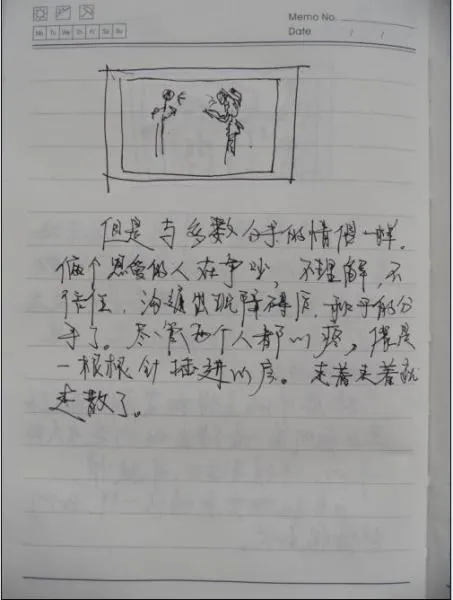 Memo No.
Date / /
Mo Tu We Th Fr Sa Su
但是与多数分手的情侣一样,
俩个恩爱的人在争吵,不理解,不
信任,沟通出现障碍后,和平的分
手了。尽管两个人都心疼,像是
一根根针插进心底。走着走着就
走散了。